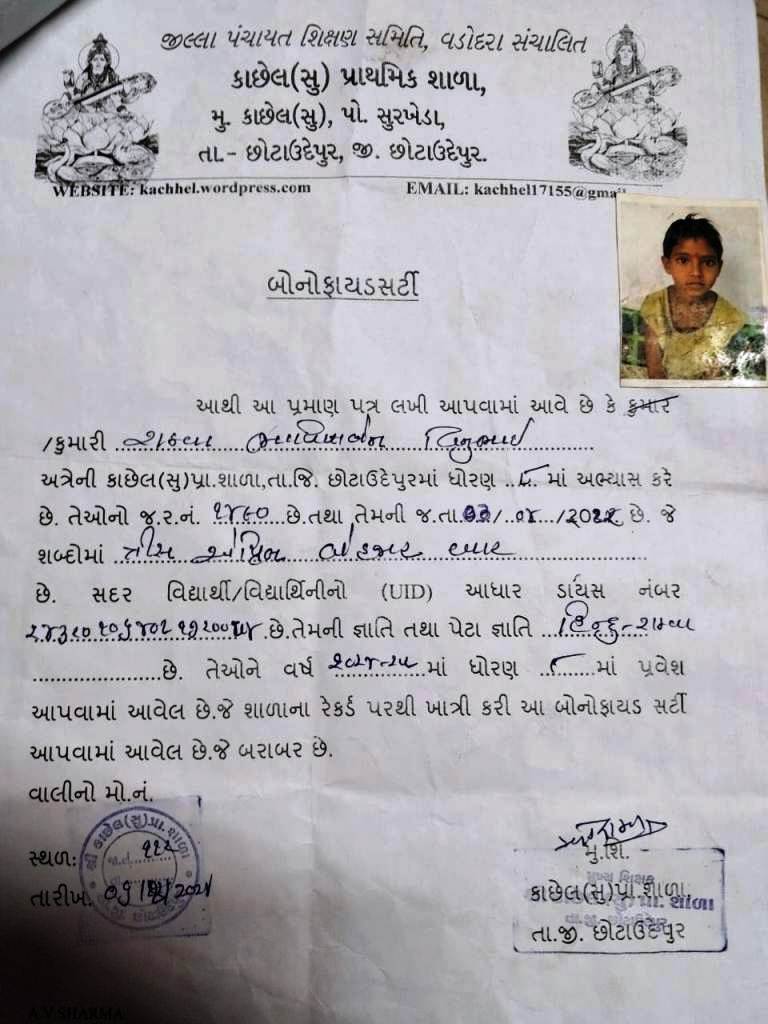 જીલ્લા પંચાયત શિક્ષણ સમિતિ, વડોદરા સંચાલિત
કાછેલ(સુ) પ્રાથમિક શાળા,
મુ. કાછેલ(સુ), પો. સુરખેડા,
તા.- છોટાઉદેપુર, જી. છોટાઉદેપુર.
WEBSITE: kachhel.wordpress.com EMAIL: kachhel17155@gmail
બોનોફાયડસર્ટી
આથી આ પ્રમાણ પત્ર લખી આપવામાં આવે છે કે કુમાર
/કુમારી રાઠવા
અત્રેની કાછેલ(સુ)પ્રા.શાળા,તા.જિ. છોટાઉદેપુરમાં ધોરણ ..૮. માં અભ્યાસ કરે
છે. તેઓનો જ.ર.નં. ...છે.તથા તેમની જ.તા. છે. જે
શબ્દોમાં
છે. સદર વિદ્યાર્થી/વિદ્યાર્થિનીનો (UID) આધાર ડાયસ નંબર
છે.તેમની જ્ઞાતિ તથા પેટા જ્ઞાતિ ...હિન્દુ-રાઠવા
છે. તેઓને વર્ષ ૨૦૨૪-૨૫ માં ધોરણ ...૮... માં પ્રવેશ
આપવામાં આવેલ છે.જે શાળાના રેકર્ડ પરથી ખાત્રી કરી આ બોનોફાયડ સર્ટી
આપવામાં આવેલ છે.જે બરાબર છે.
વાલીનો મો.નં.
શ્રી કાછેલ(સુ)પ્રા.શાળા
જા.નં.
સ્થળ:
તારીખ.
મુ.શિ.
મુખ્ય શિક્ષક
કાછેલ(સુ)પ્રા.શાળા,
તા.જી. છોટાઉદેપુર
A.V SHARMA